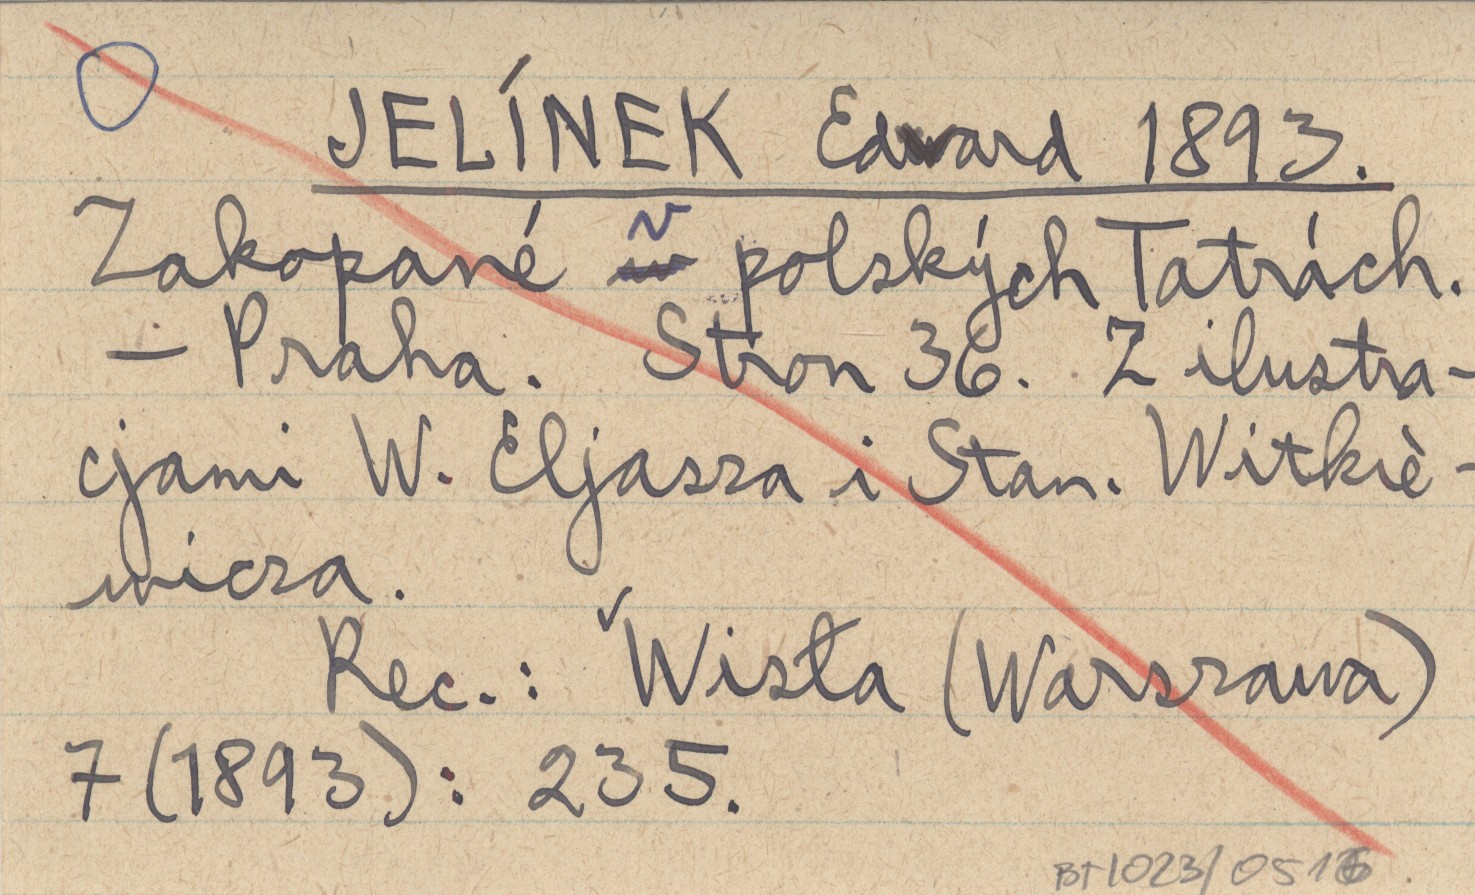 JELÍNEK Edward 1893.
Zakopané v polských Tatrách.
– Praha. Stron 36. Z ilustra-
cjami W. Eljasza i Stan. Witkie-
wicza.
Rec.: Wisła (Warszawa)
7 (1893): 235.
BT 1023/ 0516